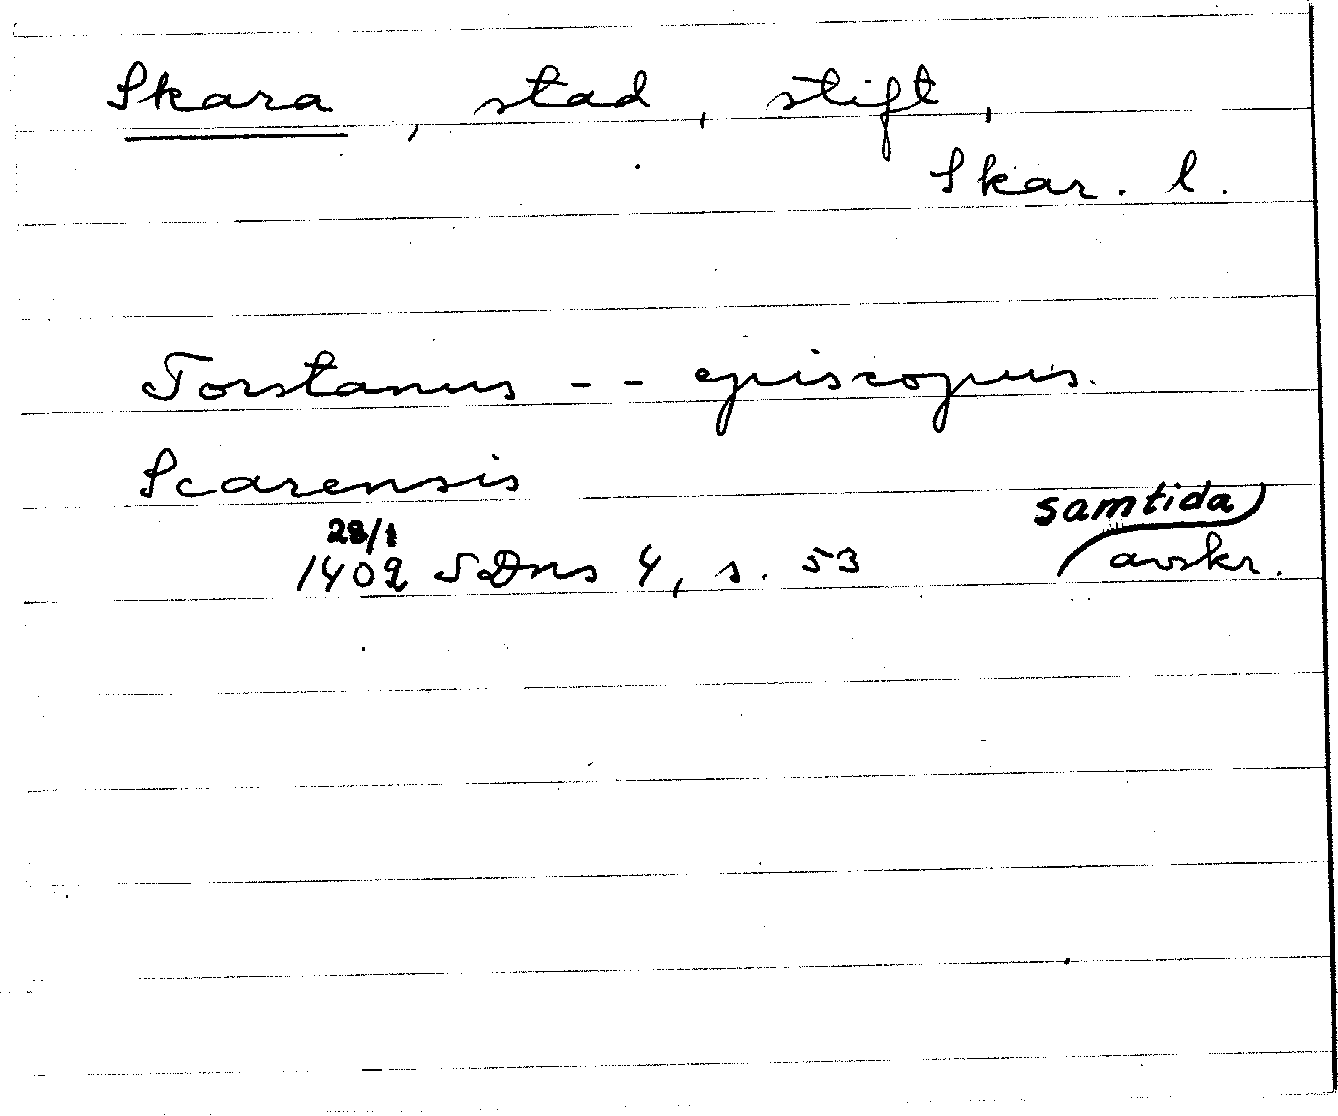 Skara, stad, stift,
Skar. l.
Torstanus - - episcopus.
Scarensis
28/1
1402 SDns 4, s. 53
samtida
avskr.